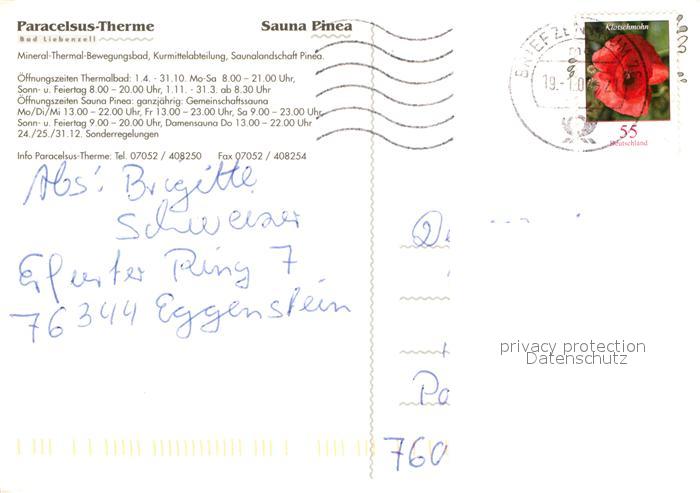 Paracelsus-Therme
Bad Liebenzell
Sauna Pinea
Mineral-Thermal-Bewegungsbad, Kurmittelabteilung, Saunalandschaft Pinea.
Öffnungszeiten Thermalbad: 1.4. - 31.10. Mo-Sa 8.00 – 21.00 Uhr,
Sonn- u. Feiertag 8.00 – 20.00 Uhr, 1.11. - 31.3. ab 8.30 Uhr
Öffnungszeiten Sauna Pinea: ganzjährig: Gemeinschaftssauna
Mo/Di/Mi 13.00 – 22.00 Uhr, Fr 13.00 – 23.00 Uhr, Sa 9.00 – 23.00 Uhr,
Sonn- u. Feiertag 9.00 – 20.00 Uhr, Damensauna Do 13.00 – 22.00 Uhr
24./25./31.12. Sonderregelungen
Info Paracelsus-Therme: Tel. 07052 / 408250 Fax 07052 / 408254
Abs: Brigitte
Schweizer
Erfurter Ring 7
76344 Eggenstein
Klatschmohn
55
Deutschland
BRIEFZENTRUM
privacy protection
Datenschutz
Pa
760